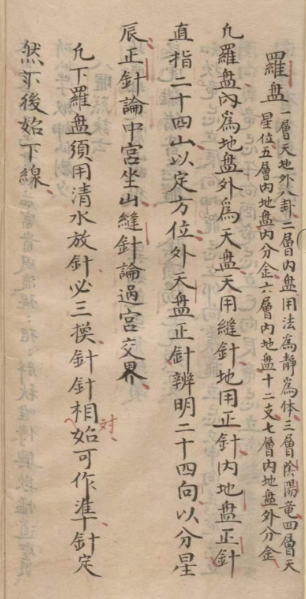 羅盘 一層天地外八卦二層內盘用法為静為体三層陰陽竜四層天
星位五層內地盘內分金六層內地盘十二支七層內地盘外分金
凢羅盘內為地盘外為天盘天用縫針地用正針內地盘正針
直指二十四山以定方位外天盘正針辨明二十四向以分星
辰正針論中宮坐山縫針論過宮交界
凢下羅盘須用清水放針必三摸針針相始可作準下針定
對
然不後始下線